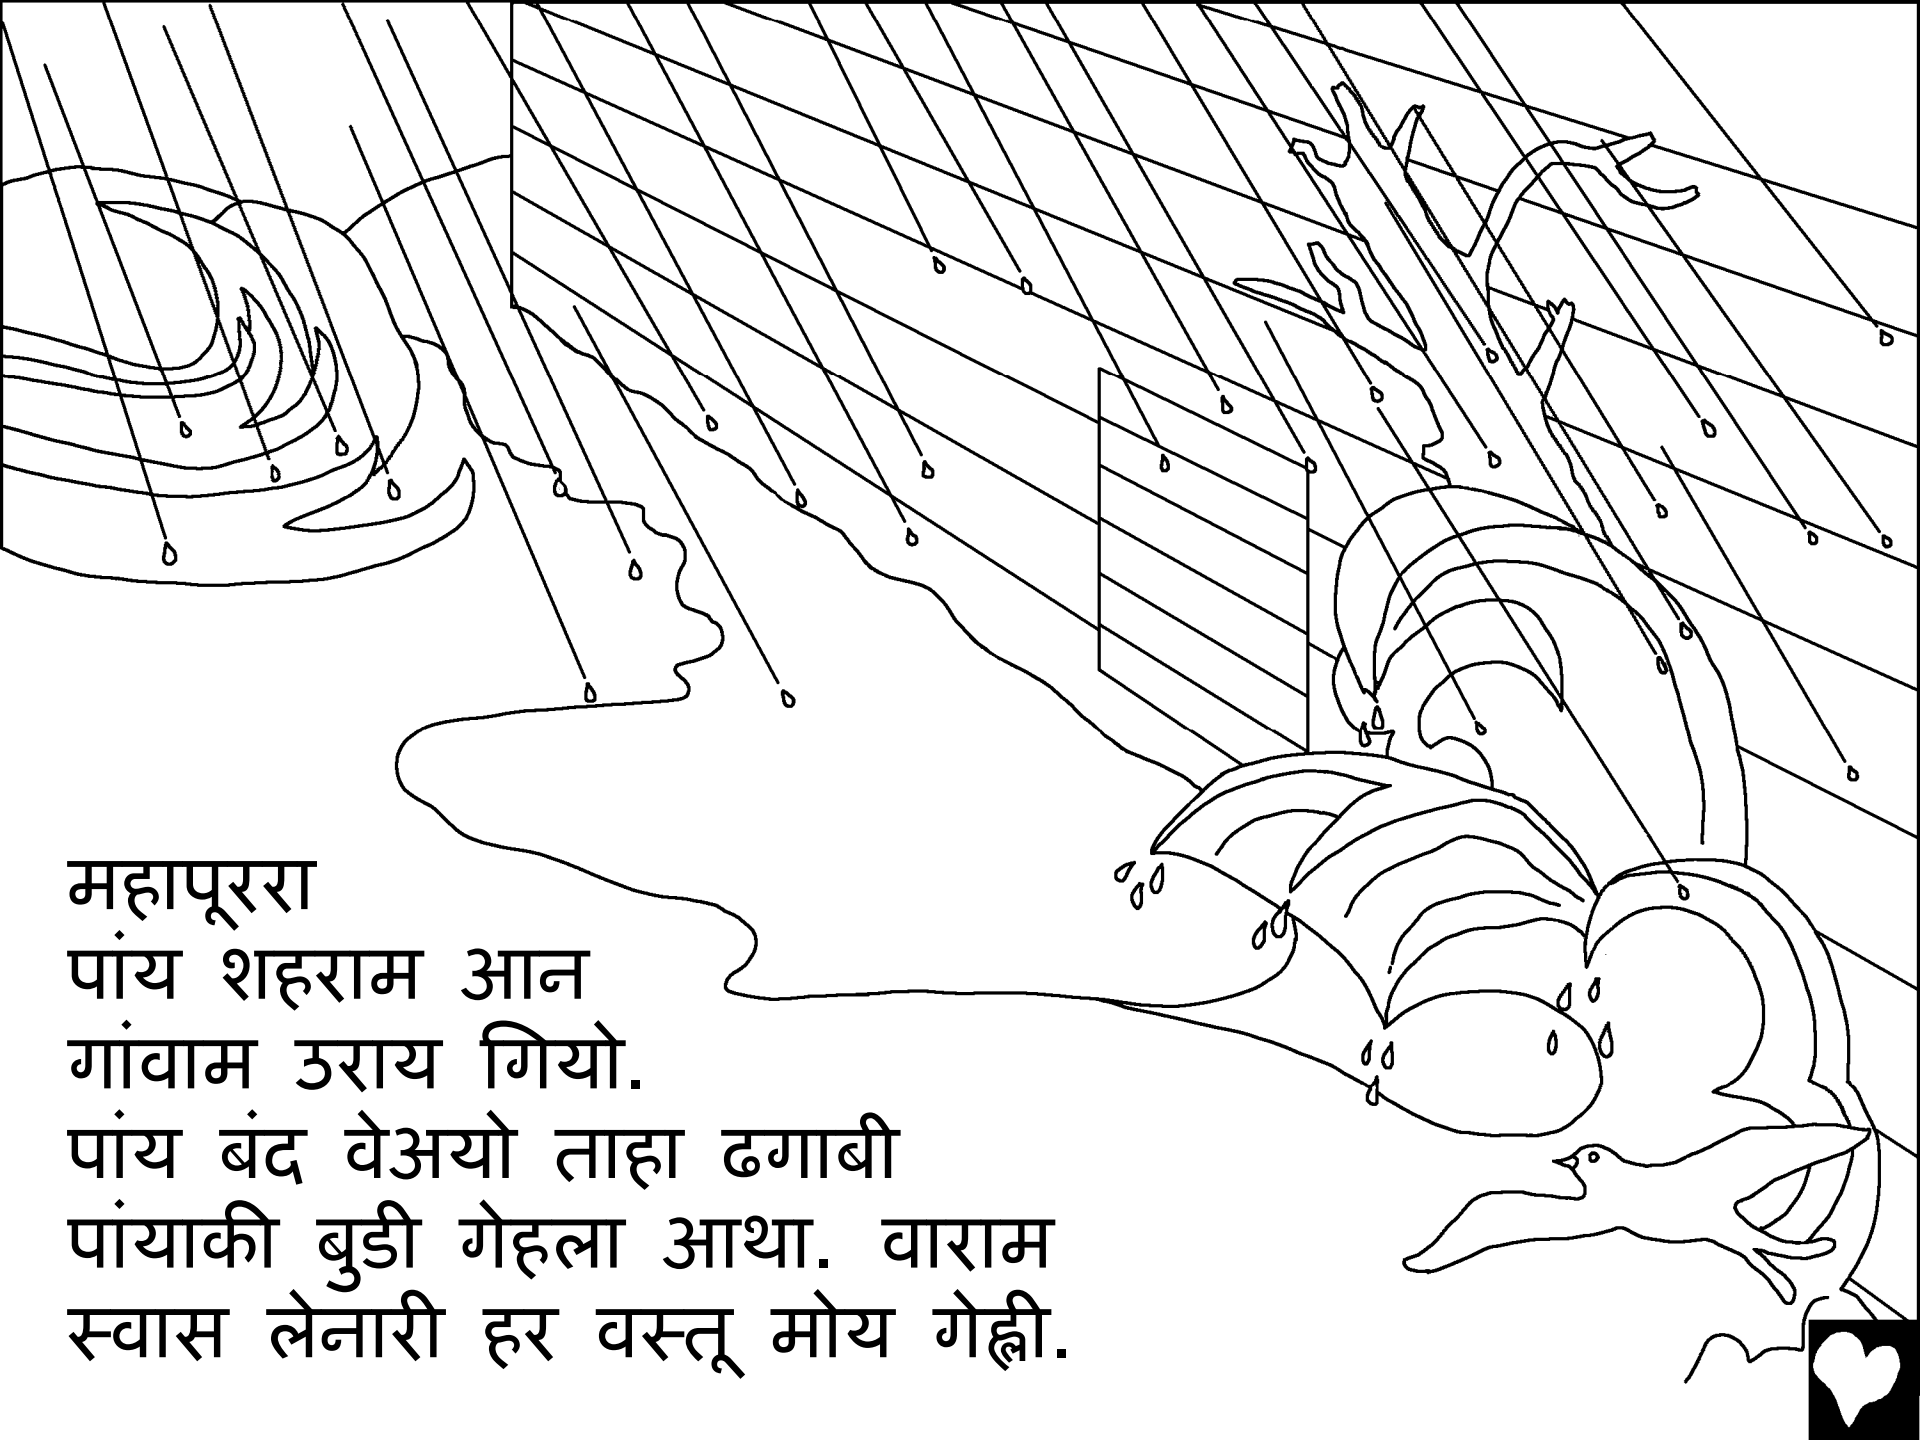 महापूररा
पांय शहराम आन
गांवाम उराय गियो.
पांय बंद वेअयो ताहा ढगाबी
पांयाकी बुडी गेहला आथा. वाराम
स्वास लेनारी हर वस्तू मोय गेह्ली.